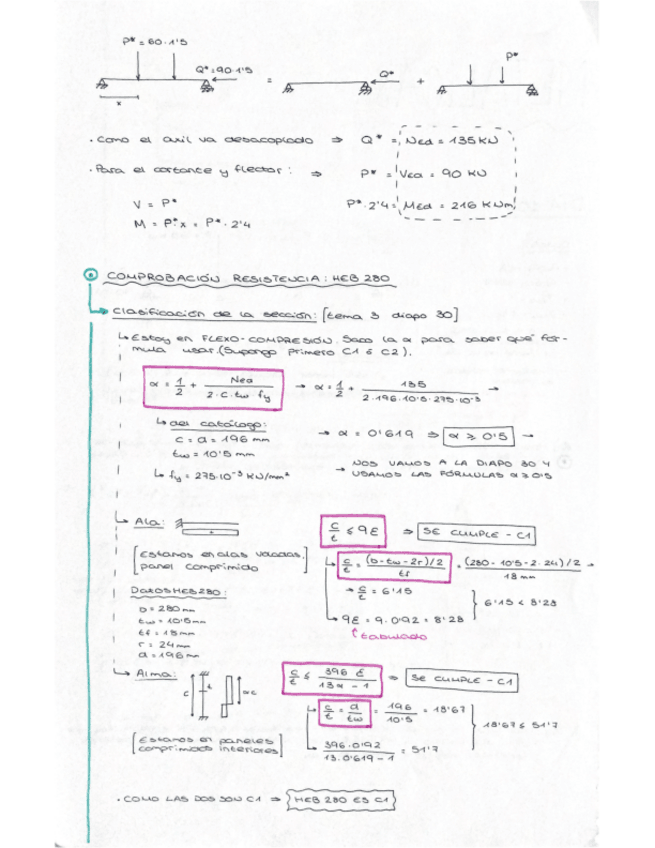 P* = 60·1'5
Q* = 90·1'5
x
=
Q*
+
P*
· Como el axil va desacoplado ⇒ Q* = Ned = 135 KN
· Para el cortante y flector: ⇒ P* = Ved = 90 KN
V = P*
P*·2'4 = Med = 216 KNm
M = P*·x = P*·2'4
COMPROBACIÓN RESISTENCIA: HEB 280
Clasificación de la sección: [tema 3 diapo 30]
↳ Estoy en FLEXO-COMPRESIÓN. Saco la α para saber qué fór-
mula usar. (Supongo primero C1 ó C2).
α = 1/2 + Ned / (2·c·tw·fy) → α = 1/2 + 135 / (2·196·10'5·275·10⁻³) →
↳ del catálogo:
c = d = 196 mm
tw = 10'5 mm
↳ fy = 275·10⁻³ KN/mm²
→ α = 0'619 ⇒ α ≥ 0'5 →
→ NOS VAMOS A LA DIAPO 30 Y
USAMOS LAS FÓRMULAS α ≥ 0'5
↳ Ala:
c/t ≤ 9ε ⇒ SE CUMPLE - C1
[Estamos en alas voladas,
panel comprimido]
↳ c/t = (b - tw - 2r)/2 / tf = (280 - 10'5 - 2·24)/2 / 18 mm →
→ c/t = 6'15
↳ 9ε = 9·0'92 = 8'28
6'15 < 8'28
↑ tabulado
Datos HEB 280:
b = 280 mm
tw = 10'5 mm
tf = 18 mm
r = 24 mm
d = 196 mm
↳ Alma:
c
t
αc
c/t ≤ 396 ε / (13α - 1) ⇒ SE CUMPLE - C1
↳ c/t = d/tw = 196/10'5 = 18'67
↳ 396·0'92 / (13·0'619 - 1) = 51'7
18'67 ≤ 51'7
[Estamos en paneles
comprimidos interiores]
· COMO LAS DOS SON C1 ⇒ HEB 280 ES C1